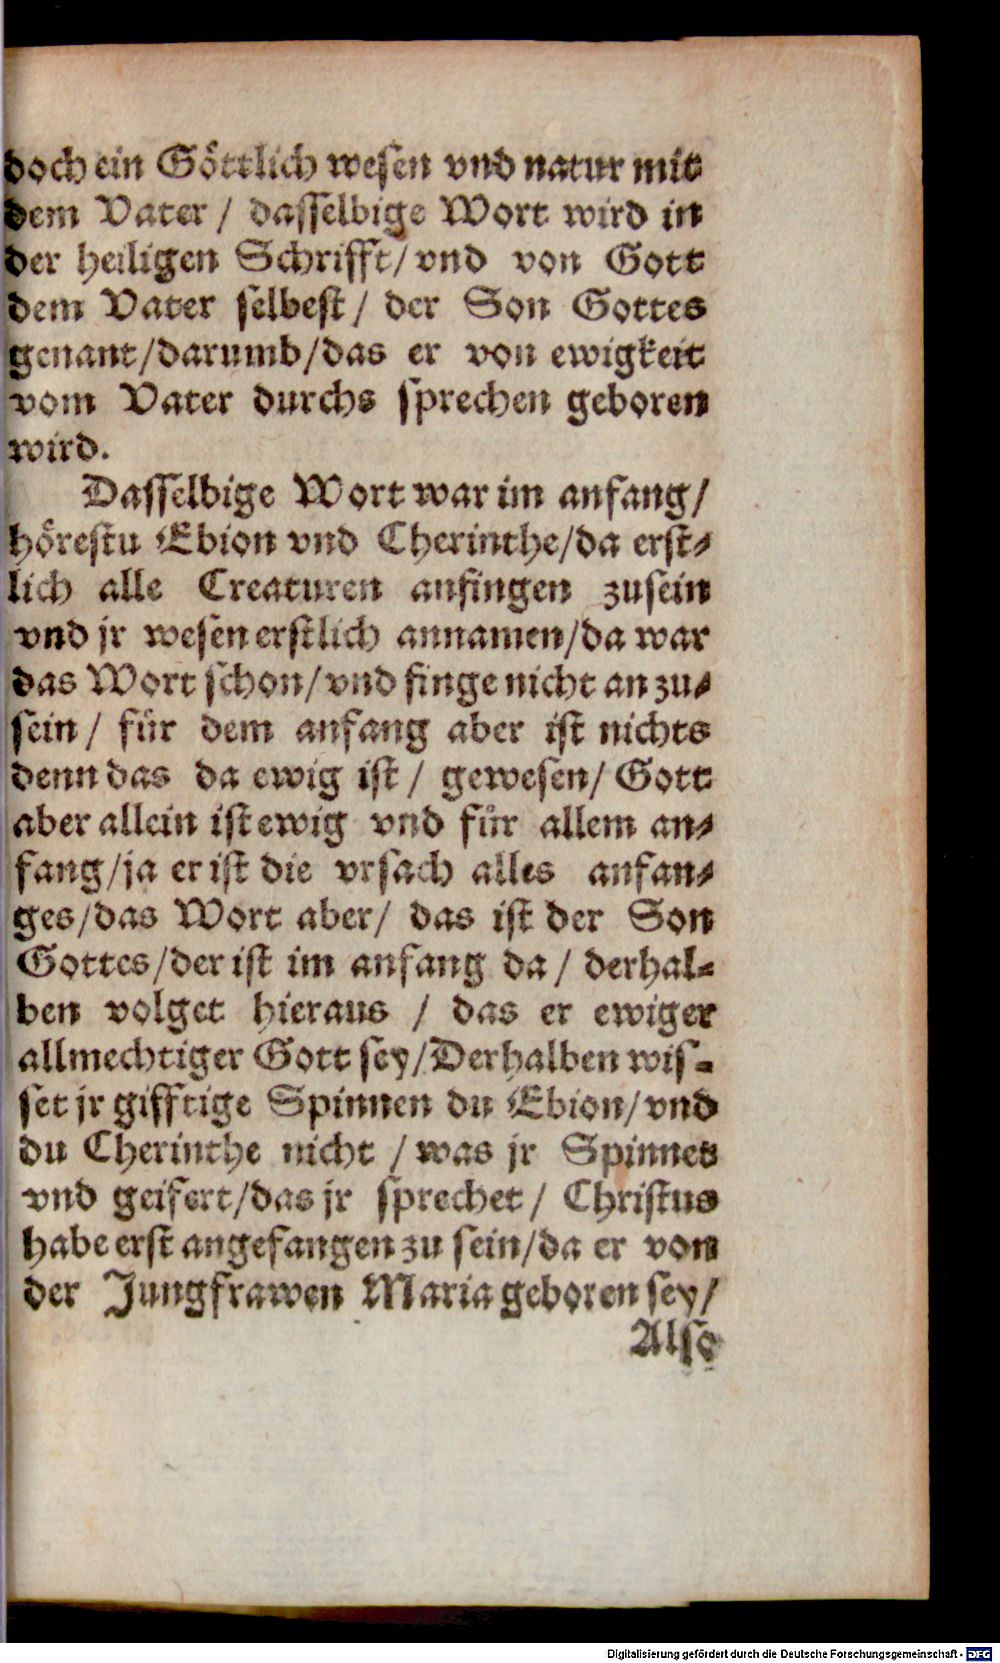 doch ein Göttlich wesen vnd natur mit
dem Vater / dasselbige Wort wird in
der heiligen Schrifft/ vnd von Gott
dem Vater selbest / der Son Gottes
genant/darumb/das er von ewigkeit
vom Vater durchs sprechen geboren
wird.
Dasselbige Wort war im anfang/
hörestu Ebion vnd Cherinthe/da erst⸗
lich alle Creaturen anfingen zusein
vnd jr wesen erstlich annamen/da war
das Wort schon/vnd finge nicht an zu⸗
sein / für dem anfang aber ist nichts
denn das da ewig ist / gewesen/ Gott
aber allein ist ewig vnd für allem an⸗
fang/ja er ist die vrsach alles anfan⸗
ges/das Wort aber/ das ist der Son
Gottes/der ist im anfang da / derhal⸗
ben volget hieraus / das er ewiger
allmechtiger Gott sey/Derhalben wis⸗
set jr gifftige Spinnen du Ebion/vnd
du Cherinthe nicht / was jr Spinnet
vnd geifert/das jr sprechet / Christus
habe erst angefangen zu sein/da er von
der Jungfrawen Maria geboren sey/
Also
Digitalisierung gefördert durch die Deutsche Forschungsgemeinschaft - DFG